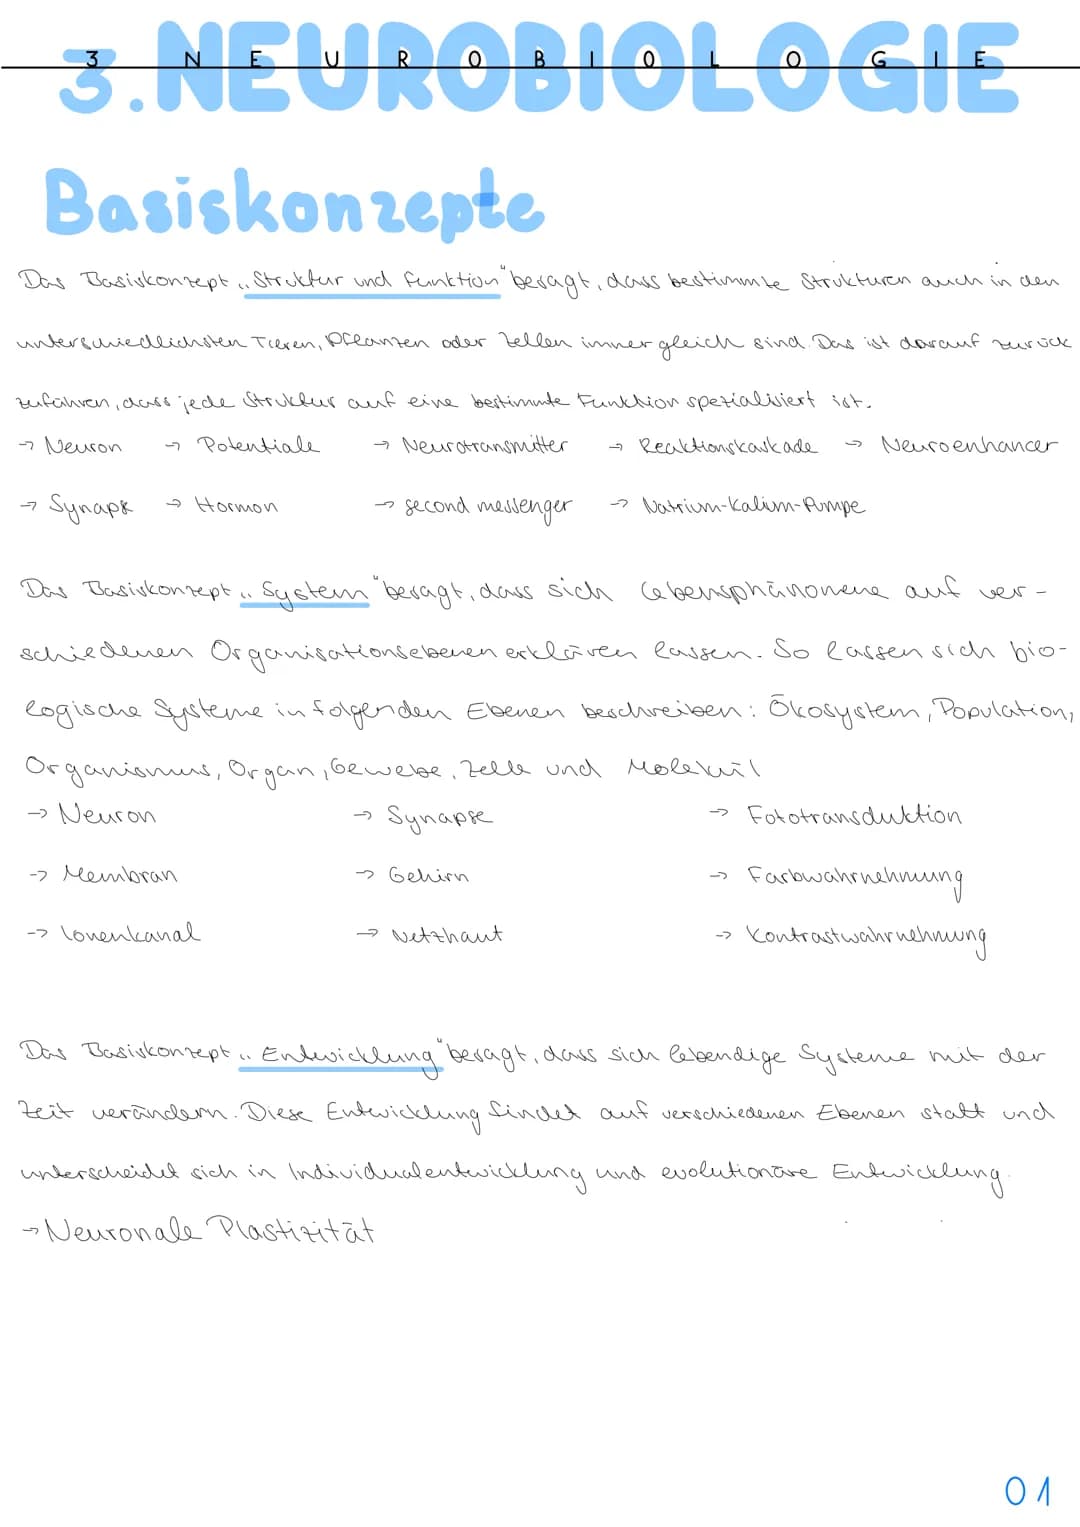 3.NEUROBIOLOGIE
3 NEUROBIOLOGIE
Basiskonzepte
Das Basiskonzept „Struktur und Funktion" besagt, dass bestimmte Strukturen auch in den
unterschiedlichsten Tieren, Pflanzen oder Zellen immer gleich sind. Das ist darauf zurück
zuführen, dass jede Struktur auf eine bestimmte Funktion spezialisiert ist.
→ Neuron → Potentiale → Neurotransmitter → Reaktionskaskade → Neuroenhancer
→ Synapse → Hormon → second messenger → Natrium-Kalium-Pumpe
Das Basiskonzept „System" besagt, dass sich Lebensphänomene auf ver-
schiedenen Organisationsebenen erklären lassen. So lassen sich bio-
logische Systeme in folgenden Ebenen beschreiben: Ökosystem, Population,
Organismus, Organ, Gewebe, Zelle und Molekül
→ Neuron → Synapse → Fototransduktion
→ Membran → Gehirn → Farbwahrnehmung
→ Ionenkanal → Netzhaut → Kontrastwahrnehmung
Das Basiskonzept „Entwicklung" besagt, dass sich lebendige Systeme mit der
Zeit verändern. Diese Entwicklung findet auf verschiedenen Ebenen statt und
unterscheidet sich in Individualentwicklung und evolutionäre Entwicklung.
→ Neuronale Plastizität
01